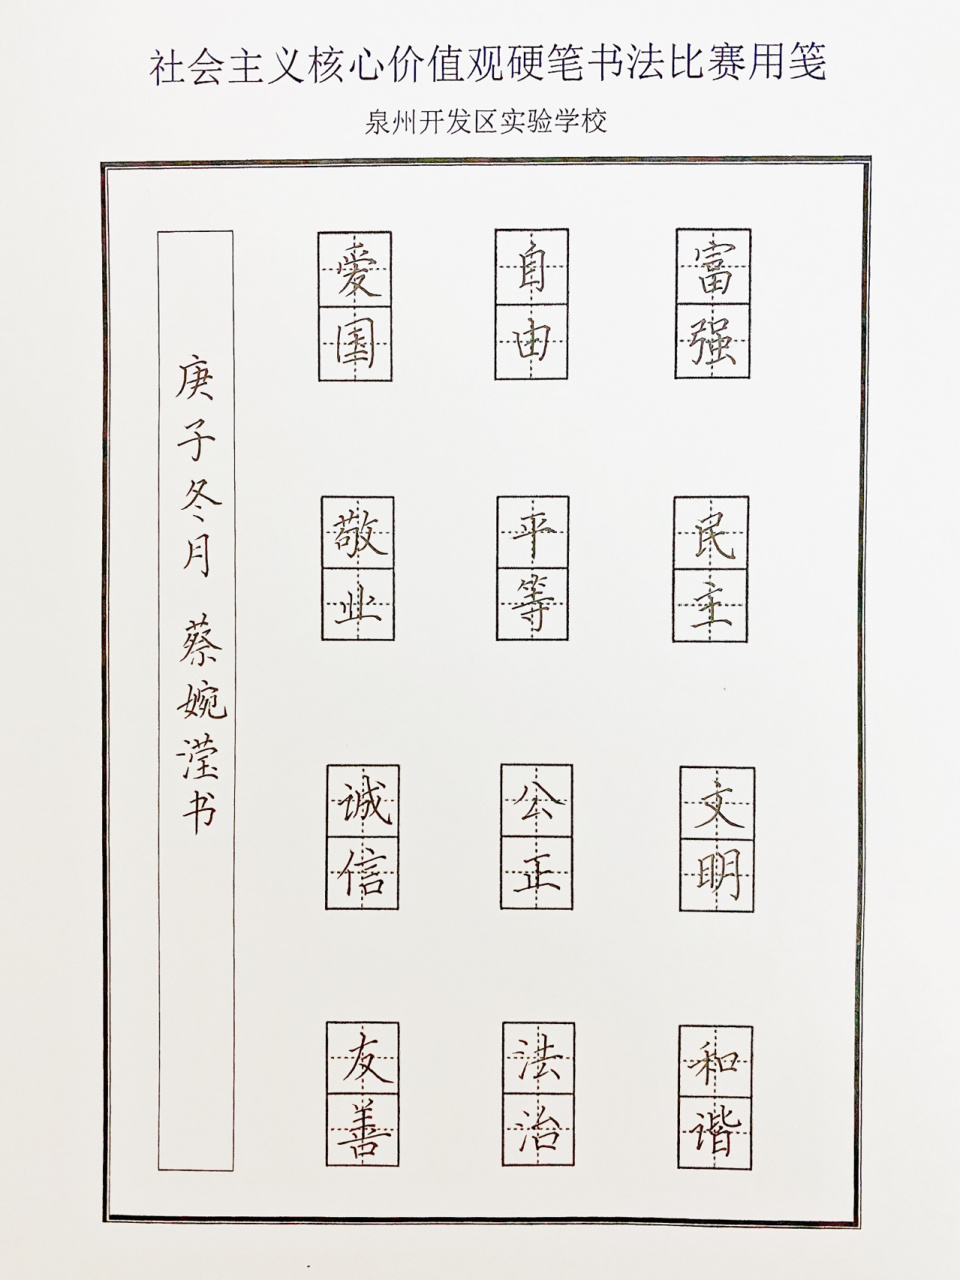 社会主义核心价值观硬笔书法比赛用笺
泉州开发区实验学校
富强
民主
文明
和谐
自由
平等
公正
法治
爱国
敬业
诚信
友善
庚子冬月 蔡婉滢书